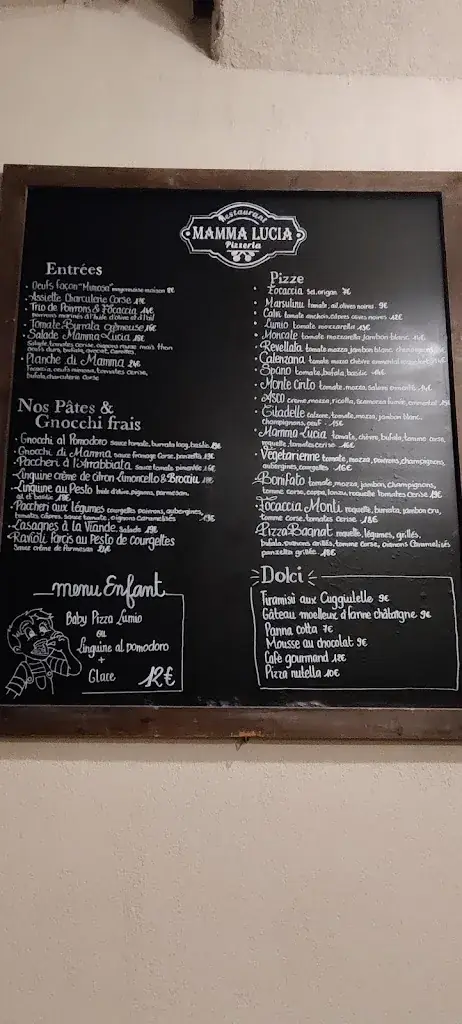 Restaurant
MAMMA LUCIA
Pizzeria
Entrées
Oeufs façon "Mimosa" mayonnaise maison 8€
Assiette Charcuterie Corse 17€
Trio de Poivrons & Focaccia 14€
poivrons marinés à l'huile d'olive et d'ail
Tomate Burrata crémeuse 16€
Salade Mamma Lucia 18€
Salade, tomates cerise, thon
oeufs durs, bufala, avocat,
Planche di Mamma 24€
Focaccia, oeufs mimosa, tomates cerise,
bufala, charcuterie corse
Nos Pâtes &
Gnocchi frais
Gnocchi al Pomodoro sauce tomate, burrata, basilic
Gnocchi di Mamma sauce fromage Corse, panzetta
Paccheri à l'Arrabbiata sauce tomate pimentée
Linguine crème de citron Limoncello & Brocciu
Linguine au Pesto huile d'olive, pignons, parmesan,
ail et basilic
Paccheri aux Légumes courgettes poivrons, aubergines,
tomates cerises, sauce tomate, oignons caramélisés
Lasagnes à la Viande, Salade
Ravioli Farcis au Pesto de Courgettes
Sauce crème de Parmesan 21€
menu Enfant
Baby Pizza Lumio
ou
Linguine al Pomodoro
+
Glace
12€
Pizze
Focaccia Sel, origan 7€
Marsulinu tomate, ail, olives noires 9€
Calvi tomate anchois, câpres olives noires 12€
Lumio tomate mozzarella 13€
Moncale tomate mozzarella jambon blanc
Revellata tomate mozza, jambon blanc, champignons
Calenzana tomate mozza chèvre emmental
Spano tomate, bufala, basilic
Monte Cinto tomate, mozza, salami
Asco crème, mozza, ricotta, scamorza fumée, emmental
Citadelle calzone, tomate, mozza, jambon blanc,
champignons, oeuf 15€
Mamma Lucia tomate, chèvre, bufala, tomme corse,
roquette, tomates cerise 16€
Végétarienne tomate, mozza, poivrons, champignons,
aubergines, courgettes 16€
Bonifato tomate, mozza, jambon, champignons,
tomme corse, coppa, lonzu, roquette tomates cerise 19€
Focaccia Monti roquette, burrata, jambon cru,
tomme corse, tomates cerise 18€
Pizza Bagnat roquette, légumes, grillés,
bufala, poivrons grillés, tomme corse, oignons Caramélisés
panzetta grillée 18€
Dolci
Tiramisù aux Cuggiulelle 9€
Gâteau moelleux à farine châtaigne 9€
Panna cotta 7€
Mousse au chocolat 9€
Café gourmand 12€
Pizza nutella 10€